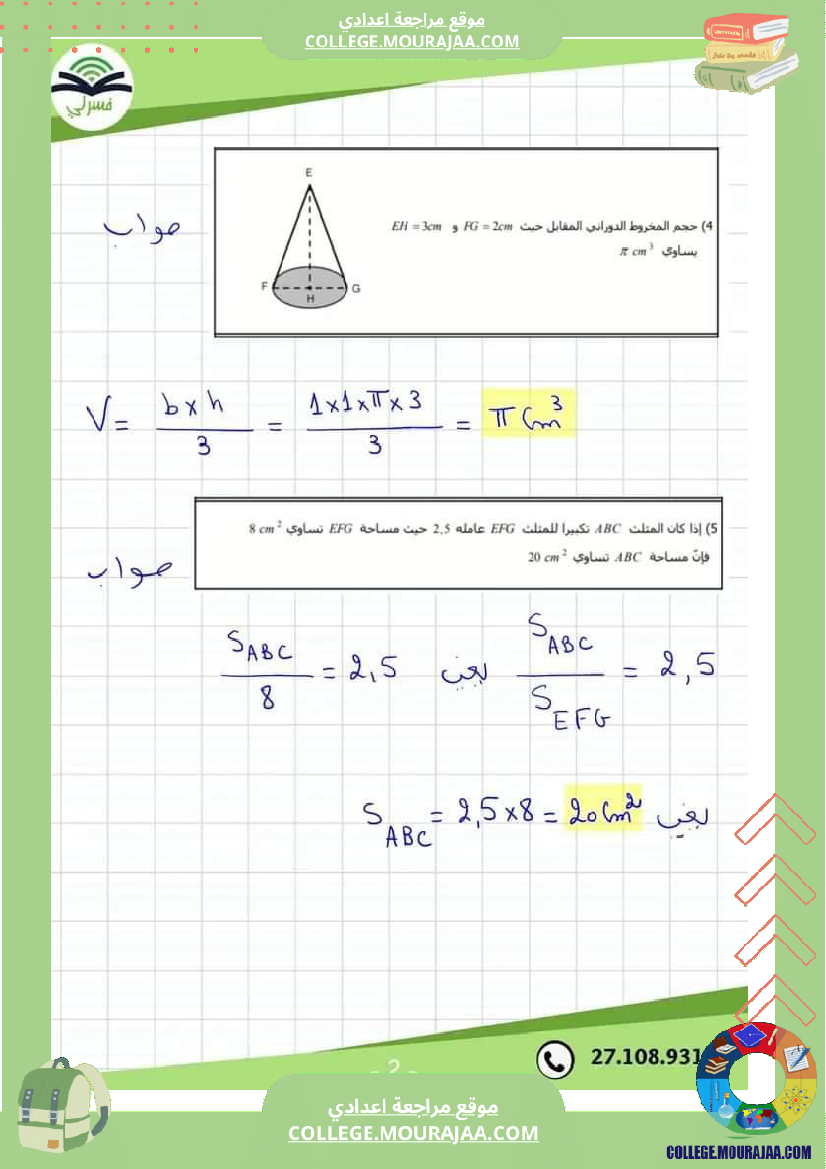 موقع مراجعة اعدادي
COLLEGE.MOURAJAA.COM
فسرلي
E
F
G
H
4) حجم المخروط الدوراني المقابل حيث FG = 2cm و EH = 3cm
يساوي π cm³
صواب
V = b x h / 3 = 1x1xπx3 / 3 = π Cm³
5) إذا كان المثلث ABC تكبيرا للمثلث EFG عامله 2,5 حيث مساحة EFG تساوي 8 cm²
فإنّ مساحة ABC تساوي 20 cm²
صواب
S_ABC / S_EFG = 2,5 يعني S_ABC / 8 = 2,5
يعني S_ABC = 2,5x8 = 20 Cm²
- 2 -
27.108.931
موقع مراجعة اعدادي
COLLEGE.MOURAJAA.COM
COLLEGE.MOURAJAA.COM